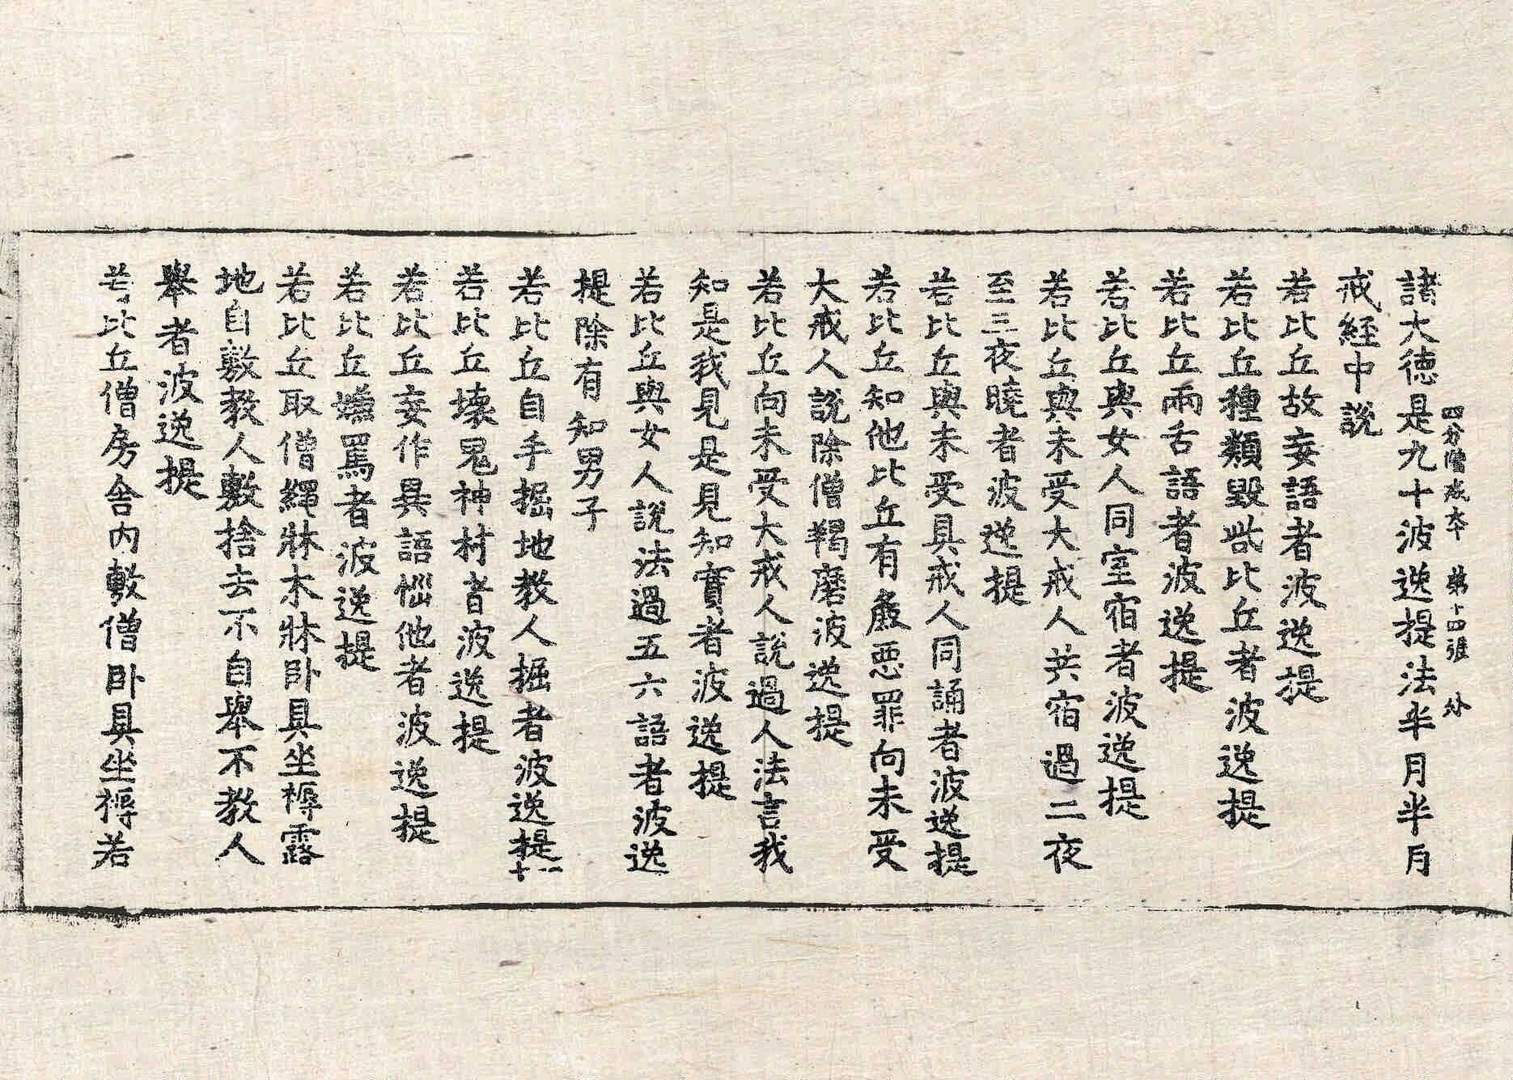 四分僧戒本 第十四張 外
諸大德是九十波逸提法半月半月
戒經中說
若比丘故妄語者波逸提
若比丘種類毀呰比丘者波逸提
若比丘兩舌語者波逸提
若比丘與女人同室宿者波逸提
若比丘與未受大戒人共宿過二夜
至三夜曉者波逸提
若比丘與未受具戒人同誦者波逸提
若比丘知他比丘有麁惡罪向未受
大戒人說除僧羯磨波逸提
若比丘向未受大戒人說過人法言我
知是我見是見知實者波逸提
若比丘與女人說法過五六語者波逸
提除有知男子
若比丘自手掘地教人掘者波逸提十
若比丘壞鬼神村者波逸提
若比丘妄作異語惱他者波逸提
若比丘嫌罵者波逸提
若比丘取僧繩牀木牀卧具坐褥露
地自敷教人敷捨去不自舉不教人
舉者波逸提
若比丘僧房舍內敷僧卧具坐褥若